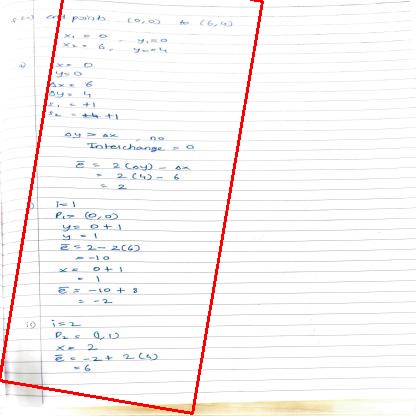 end points (0,0) to (6,4)
x₁ = 0 y₁=0
x₂ = 6, y₂=4
x = 0
y=0
Δx = 6
Δy = 4
s₁ = +1
s₂ = +1
Δy > Δx no
Interchange = 0
e̅ = 2(Δy) - Δx
= 2(4) - 6
= 2
i=1
P₁= (0,0)
y = 0+1
y = 1
e̅ = 2-2(6)
= -10
x = 0+1
= 1
e̅ = -10 + 8
= -2
ii) i=2
P₂ = (1,1)
x = 2
e̅ = -2 + 2(4)
= 6